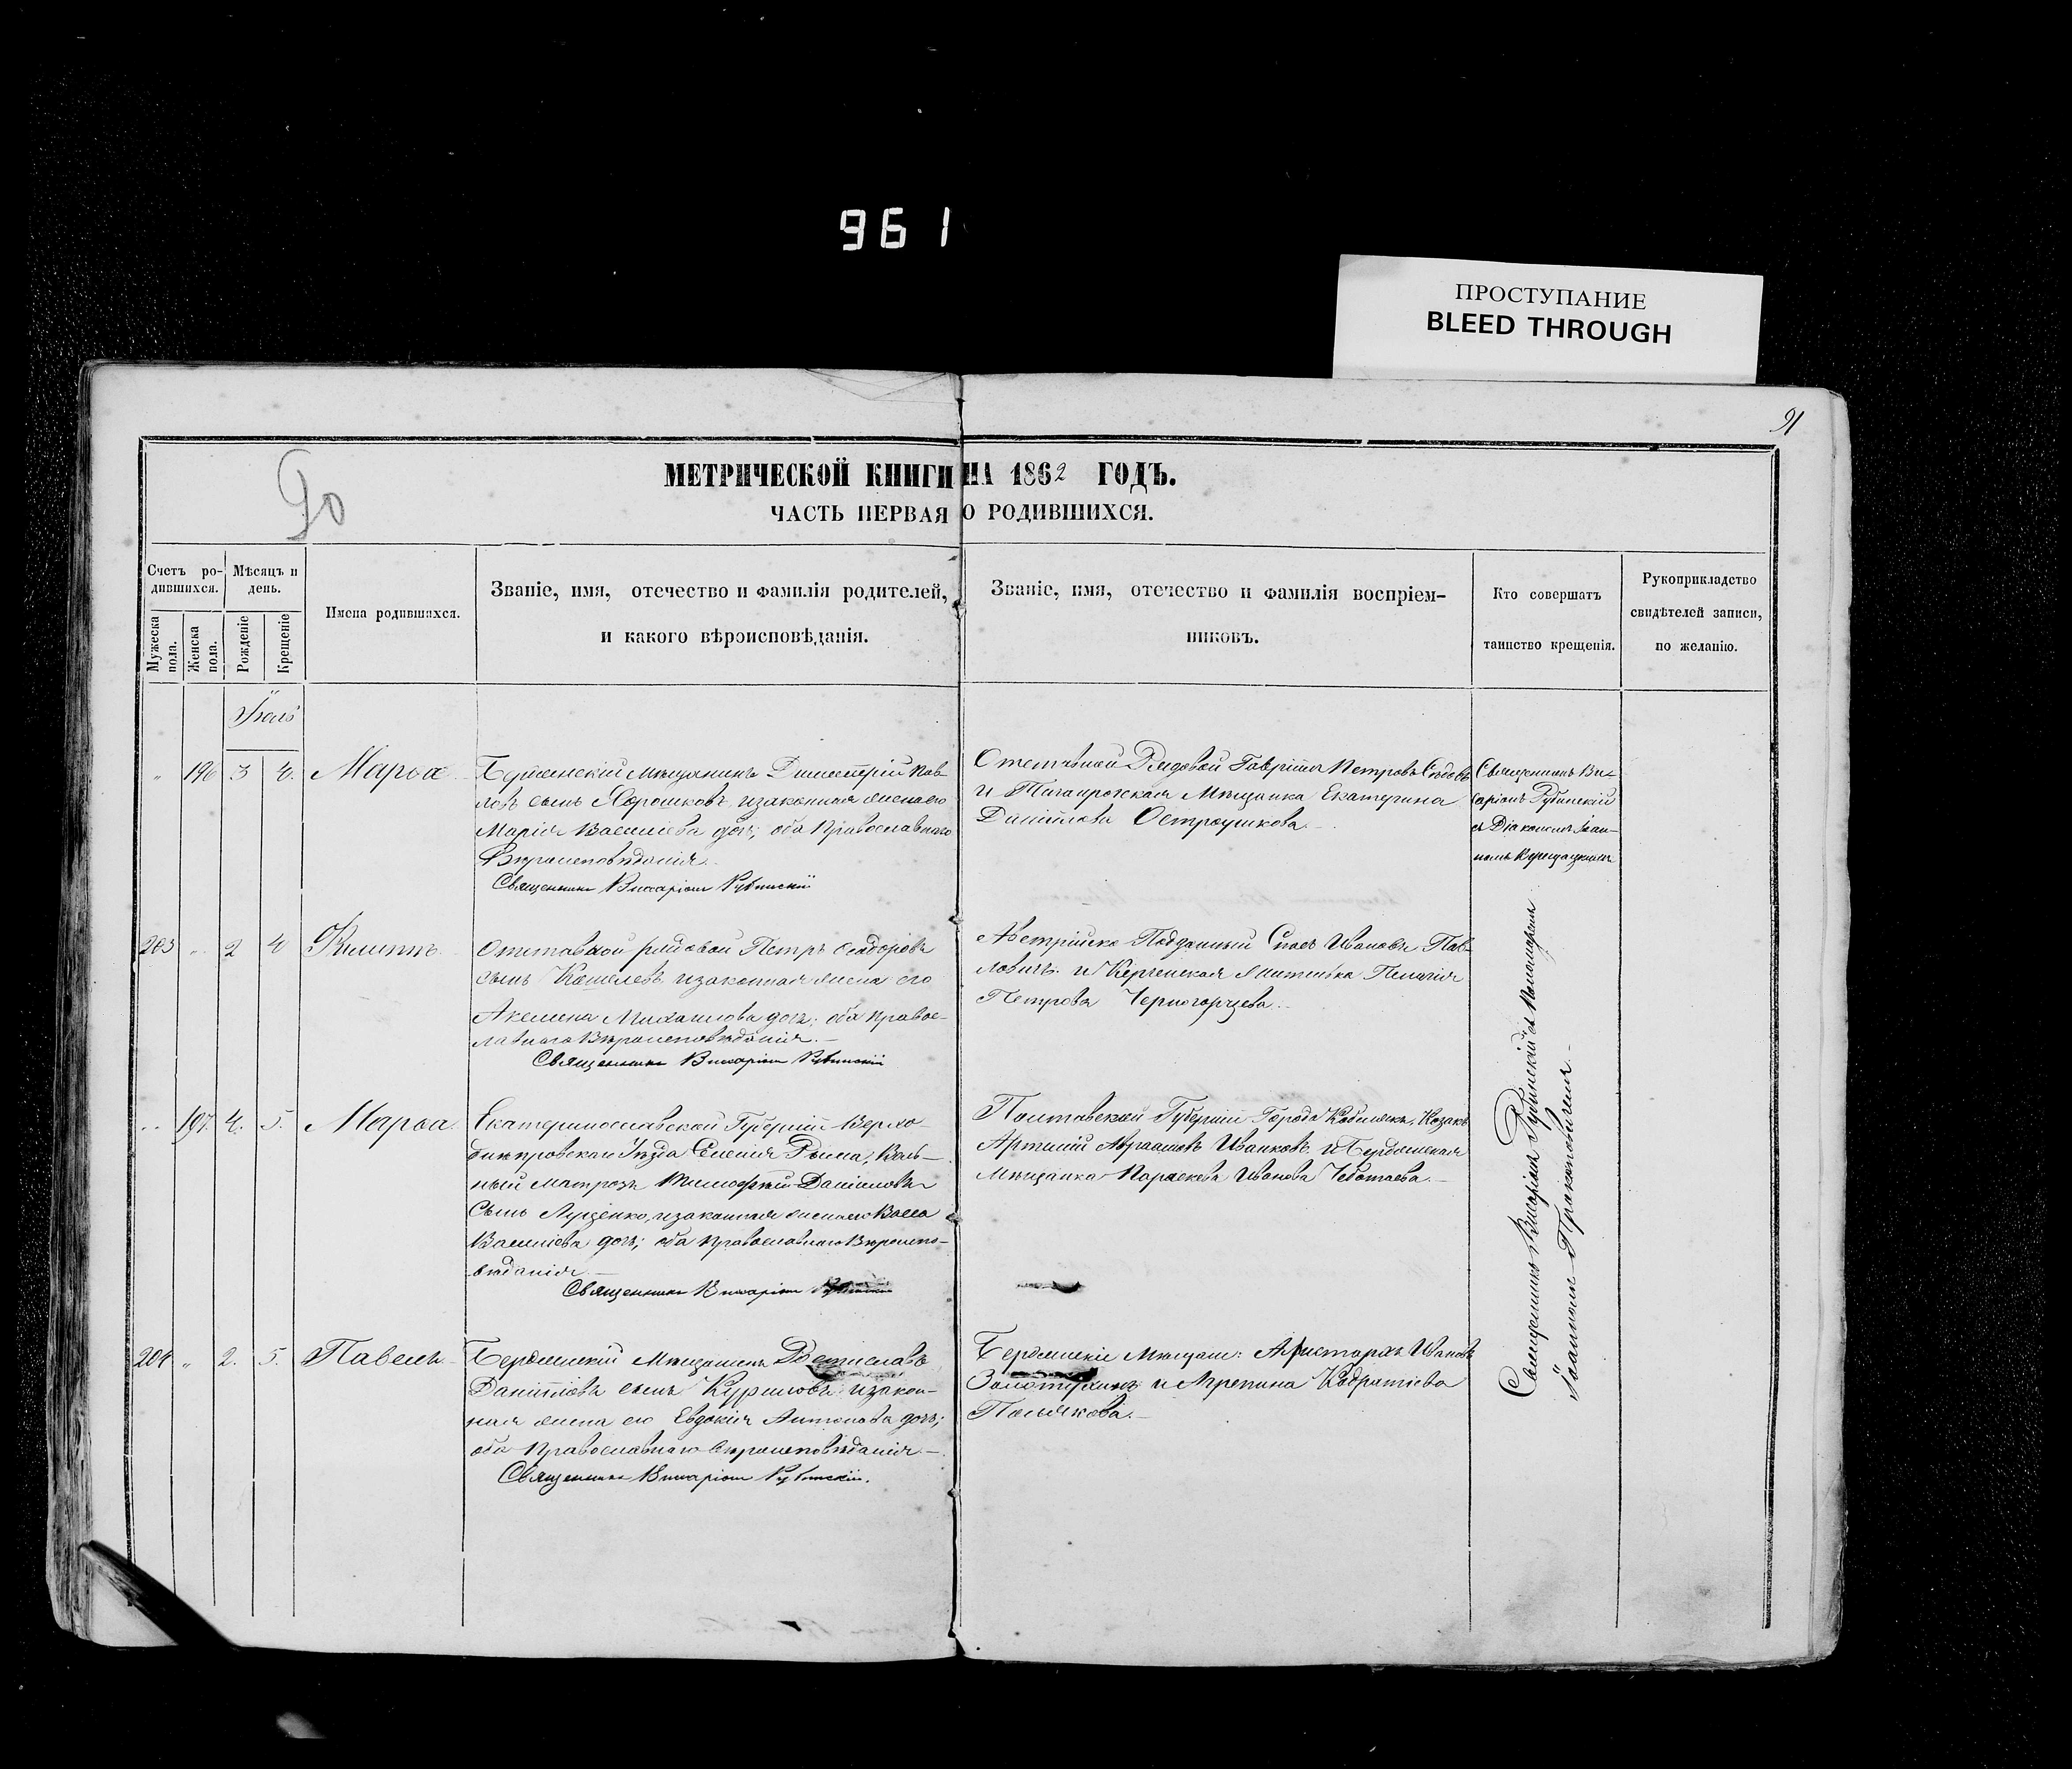 961
ПРОСТУПАНИЕ
BLEED THROUGH
91
90
МЕТРИЧЕСКОЙ КНИГИ НА 1862 ГОДЪ.
ЧАСТЬ ПЕРВАЯ О РОДИВШИХСЯ.
Счетъ ро-
дившихся.
Мѣсяцъ и
день.
Мужеска
пола.
Женска
пола.
Рожденіе
Крещеніе
Имена родившихся.
Званіе, имя, отечество и фамилія родителей,
и какого вѣроисповѣданія.
Званіе, имя, отечество и фамилія воспріем-
никовъ.
Кто совершатъ
таинство крещенія.
Рукоприкладство
свидѣтелей записи,
по желанію.
Іюль
„ 196 3 4. Марѳа
Бердянскій мѣщанинъ Димитрій Пав-
ловъ сынъ Хорошковъ, и законная жена его
Марія Васильева дочь; оба Православнаго
Вѣроисповѣданія.
Священникъ Виссаріонъ Рубинскій
Отставной Рядовой Гавріилъ Петровъ
и Таганрожская Мѣщанка Екатерина
Даніилова Остроушкова.
Священникъ Вис-
саріонъ Рубинскій
съ Діакономъ Іоан-
номъ
203 „ 2 4 Филиппъ.
Отставной рядовой Петръ Ѳедоровъ
сынъ Кошелевъ, и законная жена его
Акелина Михаилова дочь; оба Правос-
лавнаго Вѣроисповѣданія.
Священникъ Виссаріонъ Рубинскій
Австрійско-Подданный Спасъ Ивановъ Пав-
ловичъ. и Керченская жителька Пелагія
Петрова Черногорцева.
„ 197. 4. 5. Марѳа.
Екатеринославской Губерніи Верхо
днѣпровскаго Уѣзда Селенія Воль-
ный матрозъ Тимофѣй Даніиловъ
Сынъ Луценко, и законная жена его Васса
Васильева дочь; оба Православнаго Вѣроиспо-
вѣданія.
Священникъ Виссаріонъ Рубинскій
Полтавской Губерніи Города Кобелякъ, Козакъ
Артемій Авраамовъ Иванковъ. и Бердянская
Мѣщанка Параскева Иванова Чеботаева.
204 „ 2. 5. Павелъ
Бердянскій Мѣщанинъ
Даніиловъ сынъ Куриловъ и закон-
ная жена его Евдокія Антонова дочь;
оба Православнаго вѣроисповѣданія.
Священникъ Виссаріонъ Рубинскій.
Бердянскіе мѣщане: Аристархъ Ивановъ
Золотухинъ и Кодратіева
Полякова.
Священникъ Виссаріонъ Рубинскій съ Пономаремъ
Іоанномъ Прокоповичемъ.